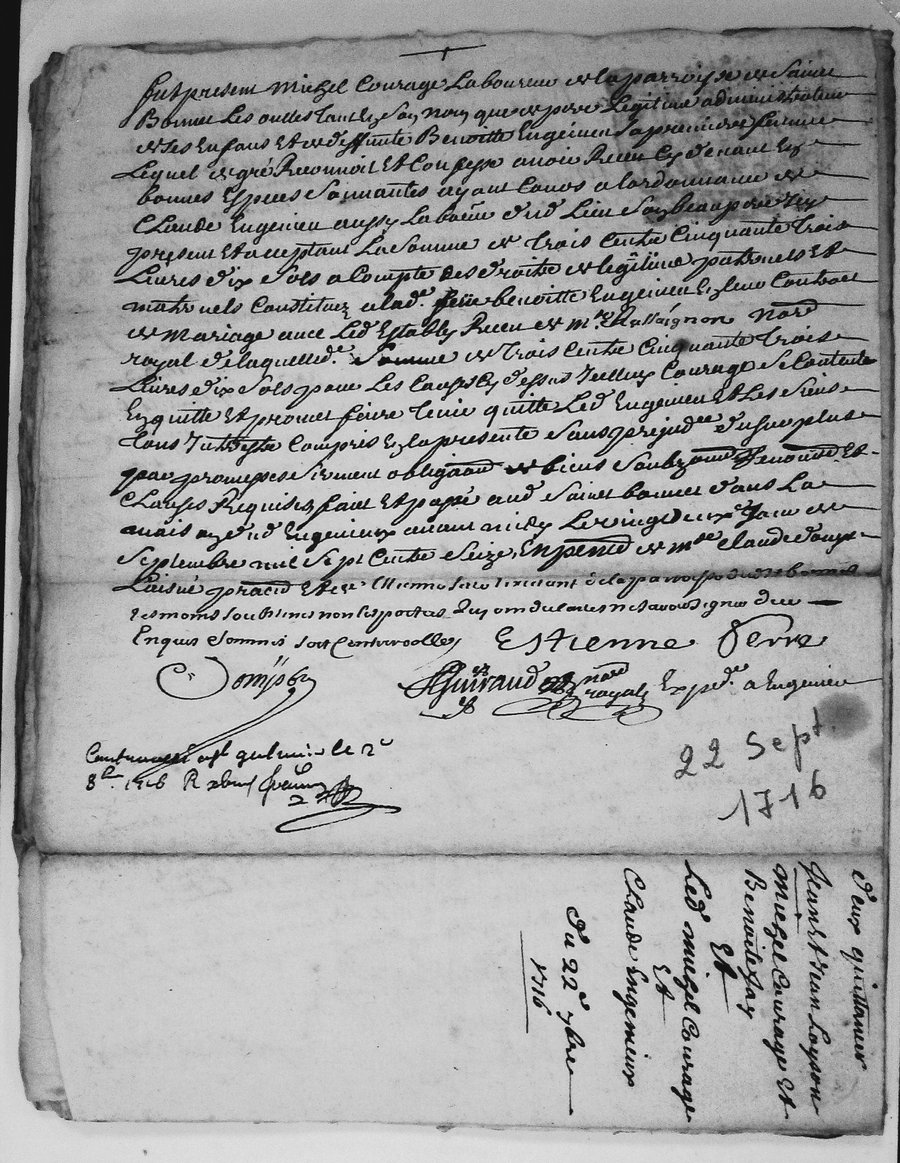 fut present Michel Courage Laboureur de la parroisse de Saint
Bonnet Les oulles tant en Son Nom que de pere Legitime administrateur
de Ses Enfans Et de deffunte Benoitte Engenieu Sa premiere femme
Lequel de gré Reconnoit Et Confesse avoir Receu Cy devant En
bonnes Especes Sonnantes ayant Cours a Lordonnance de
Claude Engenieu aussy Laboūr dud Lieu Son beau pere Icy
present Et acceptant La Somme de Trois Cents Cinquante Trois
Livres dix Sols a Compte des droits de legitime paternels Et
maternels Constituez a lad. benoitte Engenieu En leur Contract
de Mariage avec Led Establis Receu de mre nore
royal de laquelle de. Somme de Trois Cents Cinquante Trois
Livres dix Sols pour Les Causes Cy dessus Icelluy Courage Se Contente
En quitte Et promet faire Tenir quitte Led Engenieu Et Les Siens
Tous Compris En la presente Sans prejudce du Surplus
par promesses Serment obligaon de biens Soubzons Renonons Et
Clauses Requises fait Et passé aud Saint bonnet dans La
maison dud Engenieux avant midy Le vingt deuxe Jour de
Septembre mil Sept Cents Seize En presence de Claude
Laisné Et de de la parroisse dud St bonnet
tesmoins Soubsignes non les parties Qui ont declarés ne savoir signer de ce
Enquis Sommés Soit Centerrolles Estienne Verre
Guiraud nore royal Expede. a Engenieu
le 2e
8bre 1716 R
22 Sept.
1716
deux quittances
Jean Et Jean Loyson
Michel Courage Et
Benoite Jay
Et
Led Michel Courage
Et
Claude Engenieux
Du 22e 7bre
1716